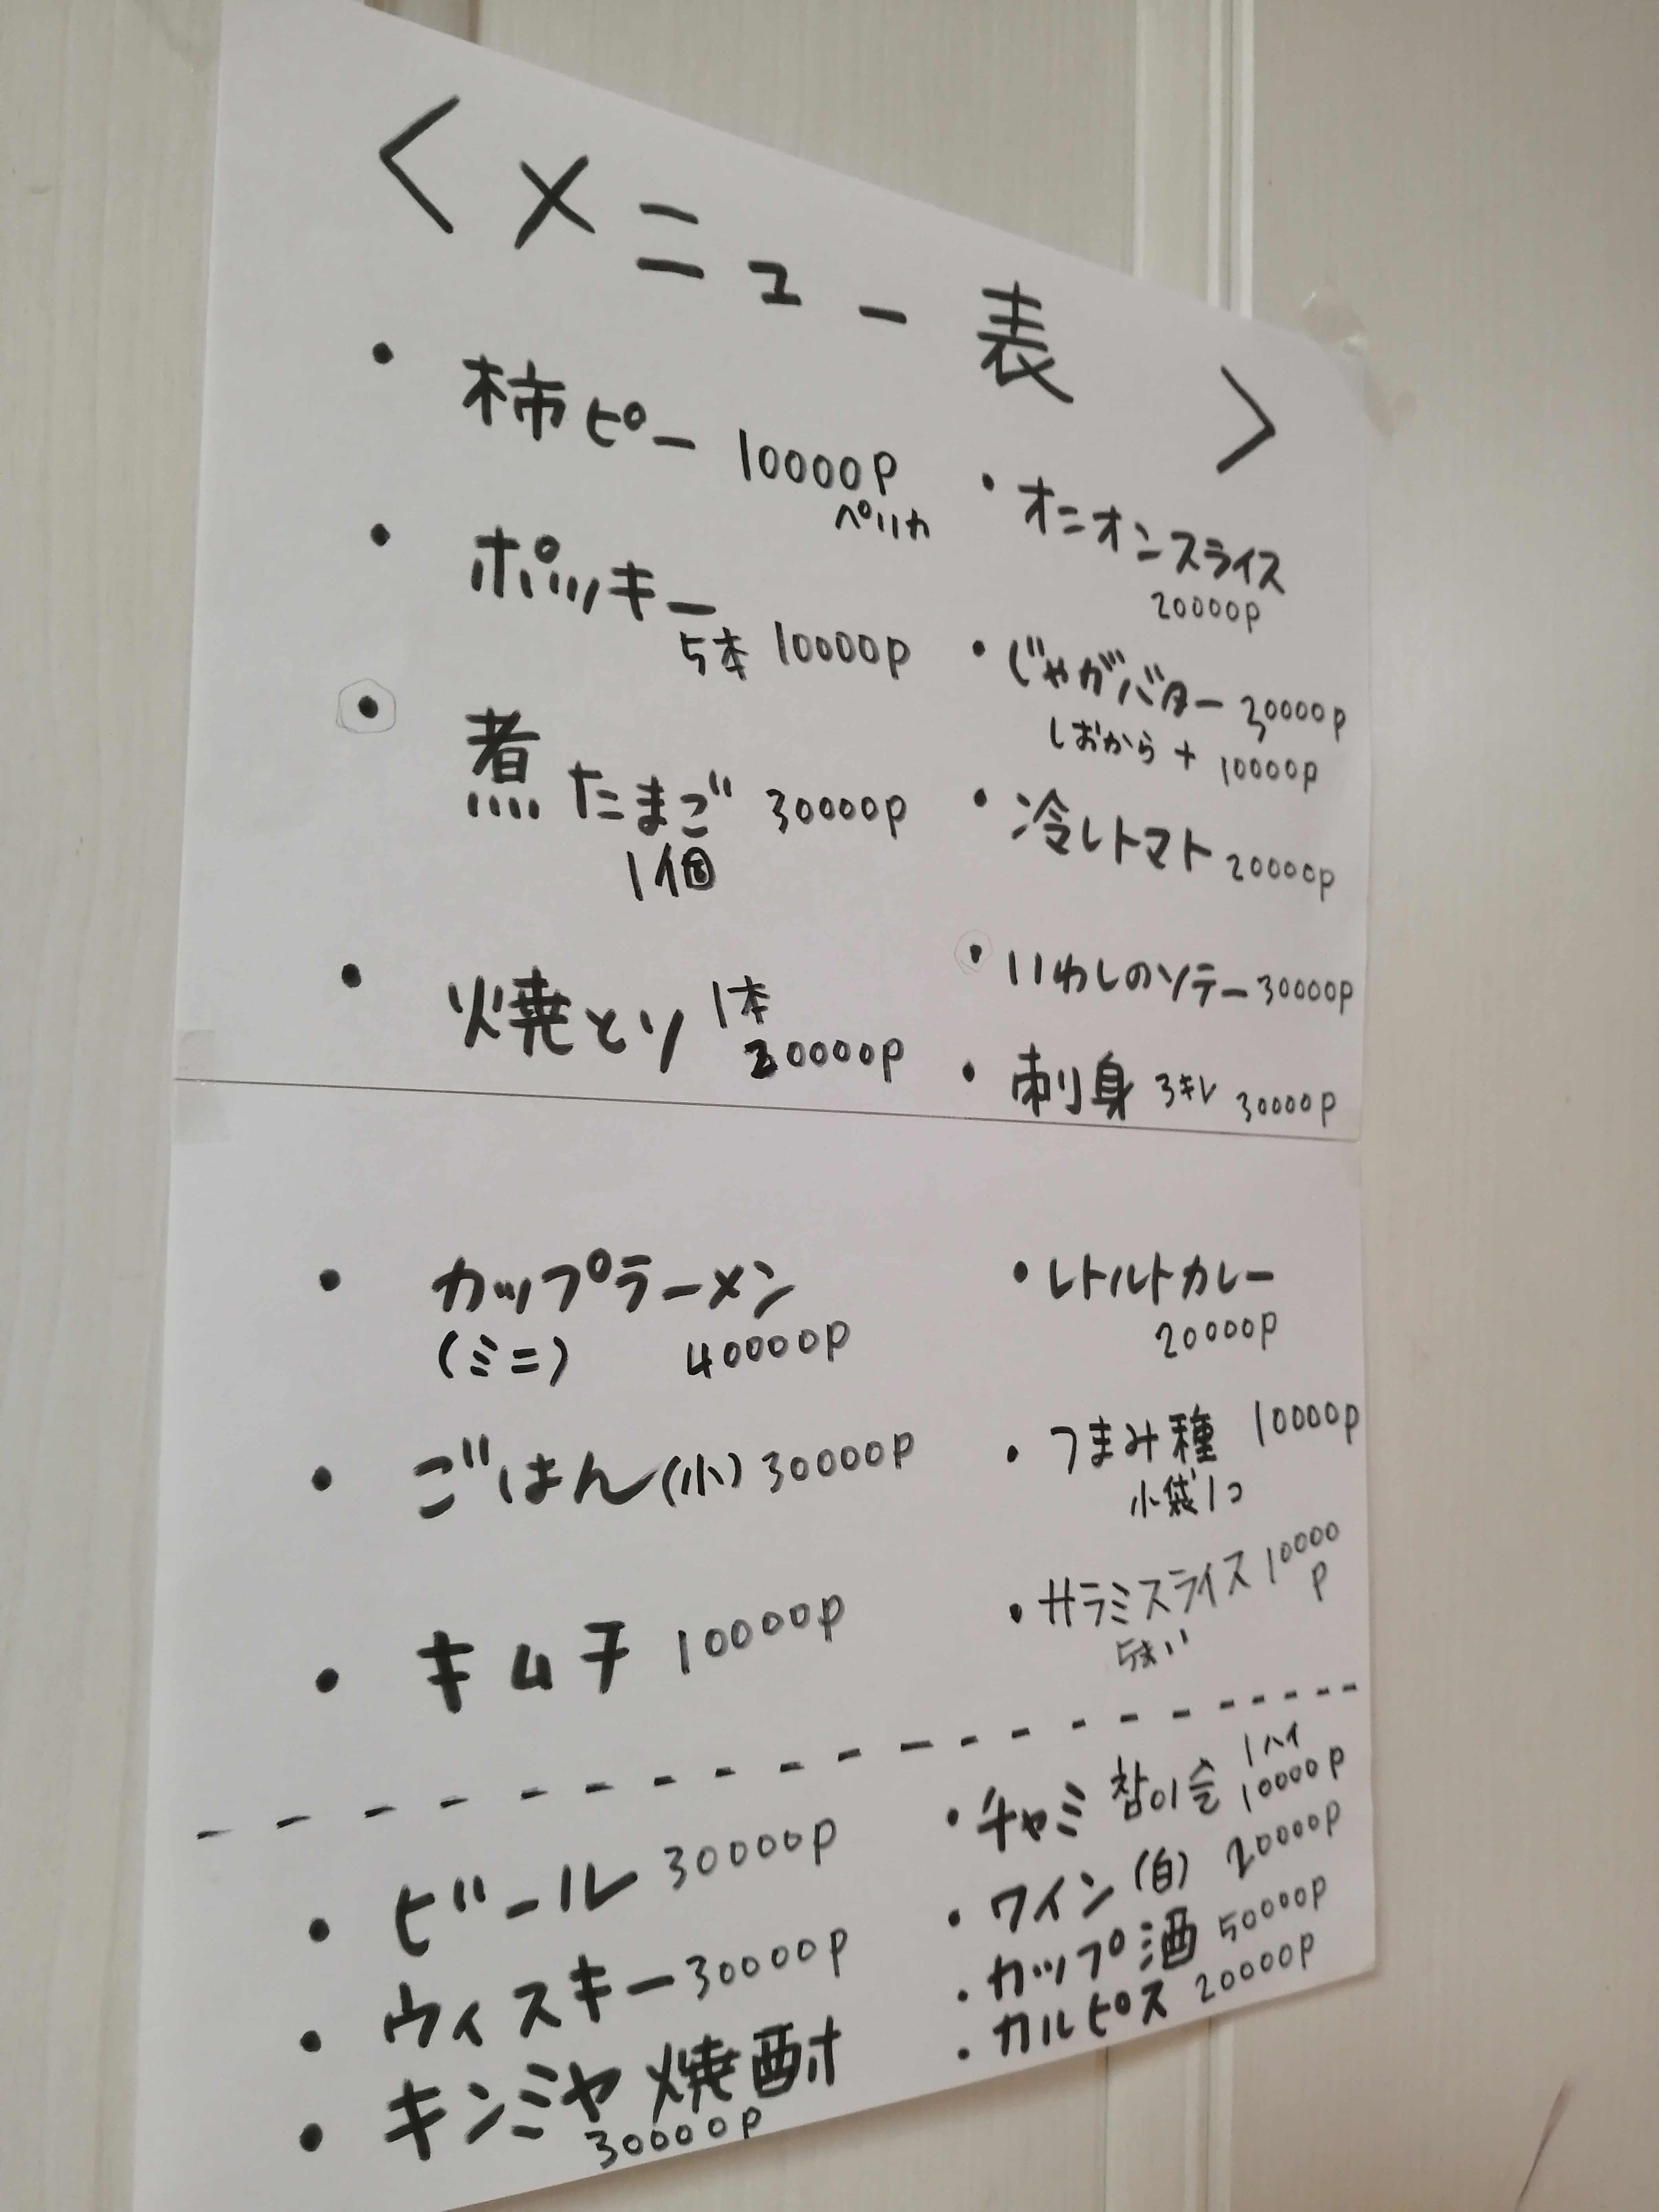 〈メニュー表〉
・柿ピー 10000P
ペリカ
・ポッキー
5本 10000P
・煮たまご 30000P
1個
・焼とり 1本
20000P
・オニオンスライス
20000P
・じゃがバター 30000P
しおから + 10000P
・冷しトマト 20000P
・いわしのソテー 30000P
・刺身 3キレ 30000P
・カップラーメン
(ミニ) 40000P
・ごはん(小) 30000P
・キムチ 10000P
・レトルトカレー
20000P
・つまみ種 10000P
小袋1コ
・サラミスライス 10000
P
5まい
・ビール 30000P
・ウィスキー 30000P
・キンミヤ焼酎
30000P
1ハイ
・チャミ 참이슬 10000P
・ワイン(白) 20000P
・カップ酒 50000P
・カルピス 20000P